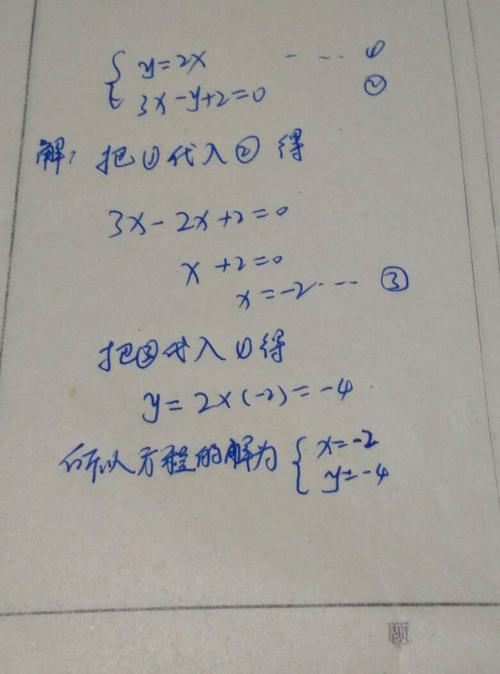 { y=2x ---- ①
3x-y+2=0 ②
解: 把①代入②得
3x-2x+2=0
x+2=0
x=-2 --- ③
把③代入①得
y=2×(-2)=-4
所以方程的解为 { x=-2
y=-4
题